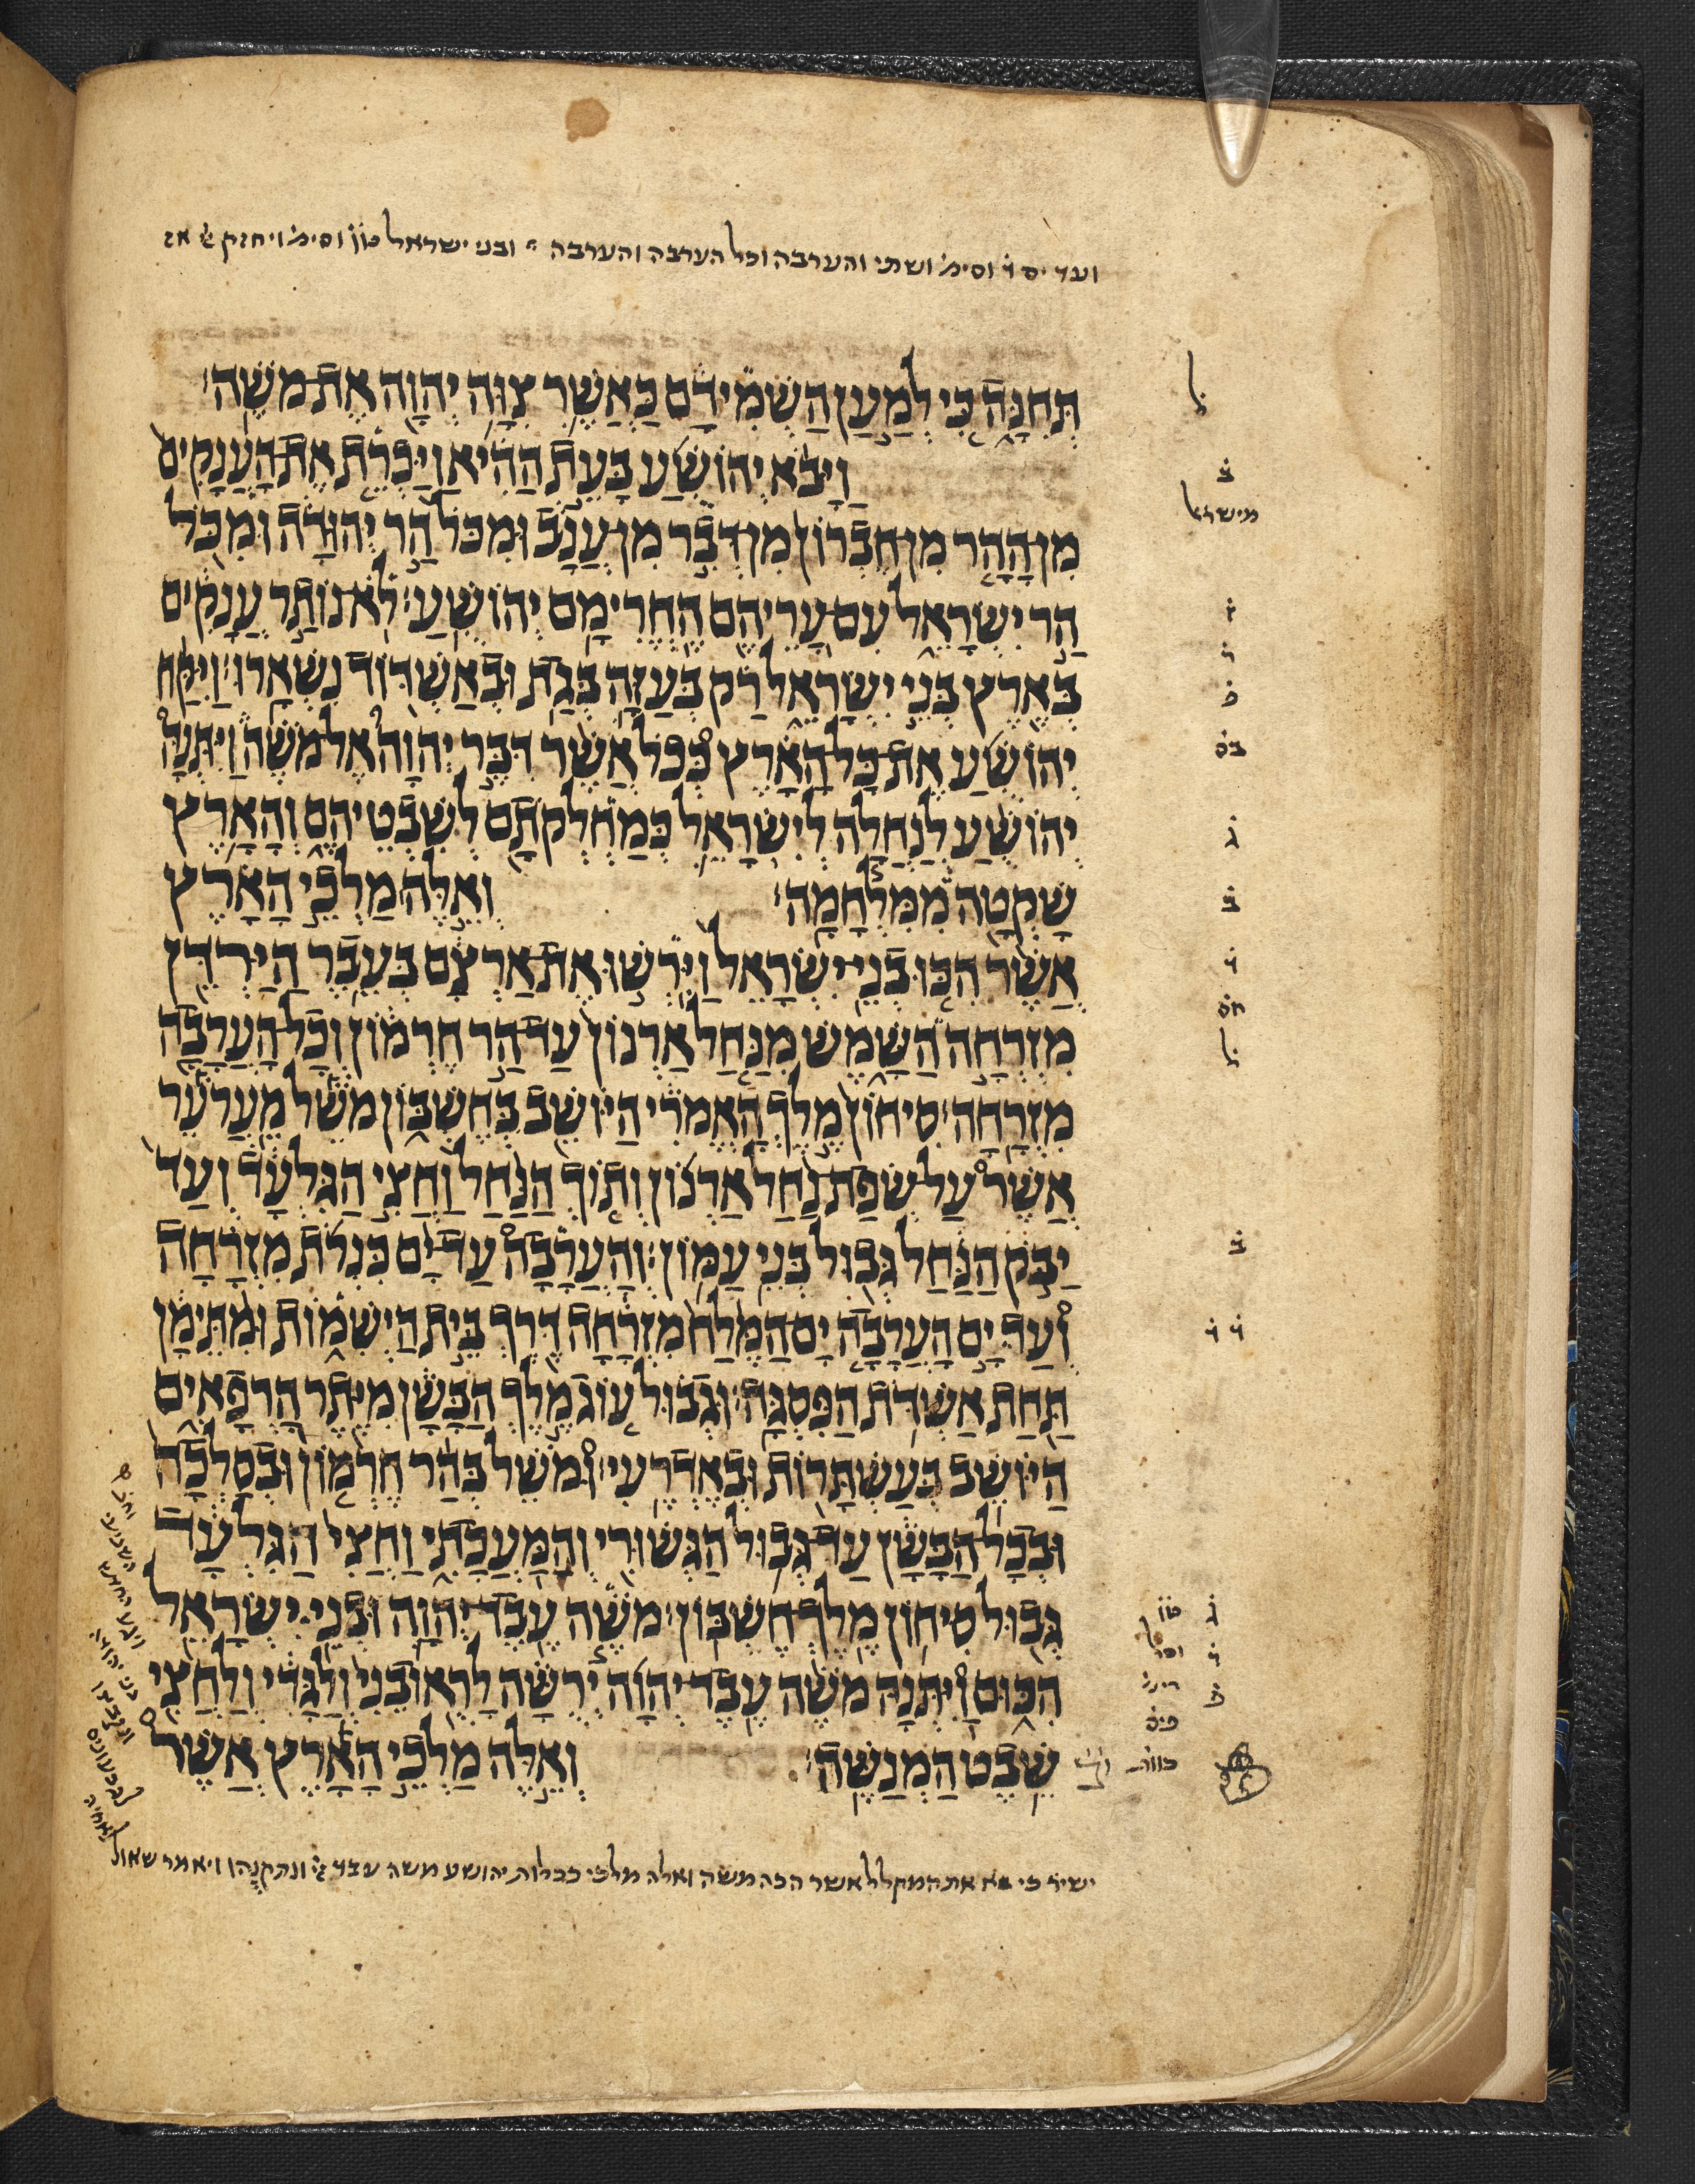 ועד יס וסימ ושתי והערבה וכל הערבה והערבה ובני ישראל וסימ ויחזק
תְּחִנָּה כִּי לְמַעַן הַשְׁמִידָם כַּאֲשֶׁר צִוָּה יְהוָה אֶת מֹשֶׁה׃
וַיָּבֹא יְהוֹשֻׁעַ בָּעֵת הַהִיא וַיַּכְרֵת אֶת הָעֲנָקִים
מִן הָהָר מִן חֶבְרוֹן מִן דְּבִר מִן עֲנָב וּמִכֹּל הַר יְהוּדָה וּמִכֹּל
הַר יִשְׂרָאֵל עִם עָרֵיהֶם הֶחֱרִימָם יְהוֹשֻׁעַ׃ לֹא נוֹתַר עֲנָקִים
בְּאֶרֶץ בְּנֵי יִשְׂרָאֵל רַק בְּעַזָּה בְּגַת וּבְאַשְׁדּוֹד נִשְׁאָרוּ׃ וַיִּקַּח
יְהוֹשֻׁעַ אֶת כָּל הָאָרֶץ כְּכֹל אֲשֶׁר דִּבֶּר יְהוָה אֶל מֹשֶׁה וַיִּתְּנָהּ
יְהוֹשֻׁעַ לְנַחֲלָה לְיִשְׂרָאֵל כְּמַחְלְקֹתָם לְשִׁבְטֵיהֶם וְהָאָרֶץ
שָׁקְטָה מִמִּלְחָמָה׃ וְאֵלֶּה מַלְכֵי הָאָרֶץ
אֲשֶׁר הִכּוּ בְנֵי יִשְׂרָאֵל וַיִּרְשׁוּ אֶת אַרְצָם בְּעֵבֶר הַיַּרְדֵּן
מִזְרְחָה הַשָּׁמֶשׁ מִנַּחַל אַרְנוֹן עַד הַר חֶרְמוֹן וְכָל הָעֲרָבָה
מִזְרָחָה׃ סִיחוֹן מֶלֶךְ הָאֱמֹרִי הַיּוֹשֵׁב בְּחֶשְׁבּוֹן מֹשֵׁל מֵעֲרֹעֵר
אֲשֶׁר עַל שְׂפַת נַחַל אַרְנוֹן וְתוֹךְ הַנַּחַל וַחֲצִי הַגִּלְעָד וְעַד
יַבֹּק הַנַּחַל גְּבוּל בְּנֵי עַמּוֹן׃ וְהָעֲרָבָה עַד יָם כִּנְרֹת מִזְרָחָה
וְעַד יָם הָעֲרָבָה יָם הַמֶּלַח מִזְרָחָה דֶּרֶךְ בֵּית הַיְשִׁמוֹת וּמִתֵּימָן
תַּחַת אַשְׁדֹּת הַפִּסְגָּה׃ וּגְבוּל עוֹג מֶלֶךְ הַבָּשָׁן מִיֶּתֶר הָרְפָאִים
הַיּוֹשֵׁב בְּעַשְׁתָּרוֹת וּבְאֶדְרֶעִי׃ וּמֹשֵׁל בְּהַר חֶרְמוֹן וּבְסַלְכָה
וּבְכָל הַבָּשָׁן עַד גְּבוּל הַגְּשׁוּרִי וְהַמַּעֲכָתִי וַחֲצִי הַגִּלְעָד
גְּבוּל סִיחוֹן מֶלֶךְ חֶשְׁבּוֹן׃ מֹשֶׁה עֶבֶד יְהוָה וּבְנֵי יִשְׂרָאֵל
הִכּוּם וַיִּתְּנָהּ מֹשֶׁה עֶבֶד יְהוָה יְרֻשָּׁה לָראוּבֵנִי וְלַגָּדִי וְלַחֲצִי
שֵׁבֶט הַמְנַשֶּׁה׃ וְאֵלֶּה מַלְכֵי הָאָרֶץ אֲשֶׁר
כי את המקלל אשר הכה משה ואלה מלכי ככלות יהושע משה עבד ויאמר שאול